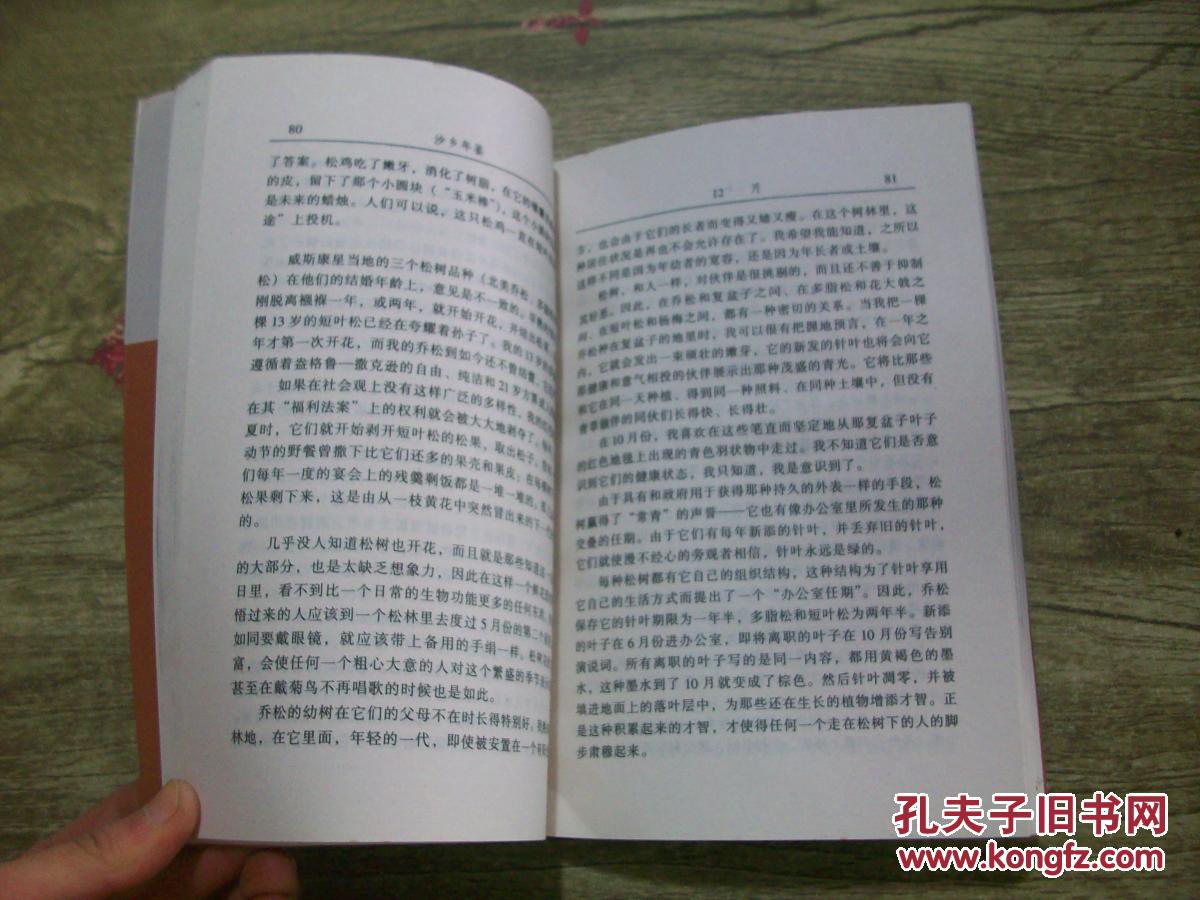 80
沙乡年鉴
了答案。松鸡吃了嫩牙，消化了树脂，在它的嗉囊
的皮，留下了那个小圆块（“玉米棒”），这个小圆
是未来的蜡烛。人们可以说，这只松鸡一直在
途”上投机。
威斯康星当地的三个松树品种（北美乔松、
松）在他们的结婚年龄上，意见是不一致的。
刚脱离襁褓一年，或两年，就开始开花，并结出
棵13岁的短叶松已经在夸耀着孙子了。我的13岁
年才第一次开花，而我的乔松到如今还不曾结蕾，
遵循着盎格鲁—撒克逊的自由、纯洁和21岁方算成
如果在社会观上没有这样广泛的多样性，我的
在其“福利法案”上的权利就会被大大地剥夺了。
夏时，它们就开始剥开短叶松的松果，取出松子。
动节的野餐曾撒下比它们还多的果壳和果皮；在每
们每年一度的宴会上的残羹剩饭都是一堆一堆的。
松果剩下来，这是由从一枝黄花中突然冒出来的下一
的。
几乎没人知道松树也开花，而且就是那些知道
的大部分，也是太缺乏想象力，因此在这样一个鲜花
日里，看不到比一个日常的生物功能更多的任何东西。
悟过来的人应该到一个松林里去度过5月份的第二个
如同要戴眼镜，就应该带上备用的手绢一样。松树
富，会使任何一个粗心大意的人对这个繁盛的季节
甚至在戴菊鸟不再唱歌的时候也是如此。
乔松的幼树在它们的父母不在时长得特别好。
林地，在它里面，年轻的一代，即使被安置在一个
12 月
81
方，也会由于它们的长者而变得又矮又瘦。在这个树林里，这
种居住状况是再也不会允许存在了。我希望我能知道，之所以
这样不同是因为年幼者的宽容，还是因为年长者或土壤。
松树，和人一样，对伙伴是很挑剔的，而且还不善于抑制
其好恶。因此，在乔松和复盆子之间、在多脂松和花大戟之
间、在短叶松和杨梅之间，都有一种密切的关系。当我把一棵
乔松种在复盆子的地里时，我可以很有把握地预言，在一年之
内，它就会发出一束硕壮的嫩芽，它的新发的针叶也将会向它
那健康和意气相投的伙伴展示出那种茂盛的青光。它将比那些
和它在同一天种植、得到同一种照料、在同种土壤中，但没有
青草做伴的同伙们长得快、长得壮。
在10月份，我喜欢在这些笔直而坚定地从那复盆子叶子
的红色地毯上出现的青色羽状物中走过。我不知道它们是否意
识到它们的健康状态，我只知道，我是意识到了。
由于具有和政府用于获得那种持久的外表一样的手段，松
树赢得了“常青”的声誉——它也有像办公室里所发生的那种
交叠的任期。由于它们有每年新添的针叶，并丢弃旧的针叶，
它们就使漫不经心的旁观者相信，针叶永远是绿的。
每种松树都有它自己的组织结构，这种结构为了针叶享用
它自己的生活方式而提出了一个“办公室任期”。因此，乔松
保存它的针叶期限为一年半，多脂松和短叶松为两年半。新添
的叶子在6月份进办公室，即将离职的叶子在10月份写告别
演说词。所有离职的叶子写的是同一内容，都用黄褐色的墨
水，这种墨水到了10月就变成了棕色。然后针叶凋零，并被
填进地面上的落叶层中，为那些还在生长的植物增添才智。正
是这种积累起来的才智，才使得任何一个走在松树下的人的脚
步肃穆起来。
孔夫子旧书网
www.kongfz.com